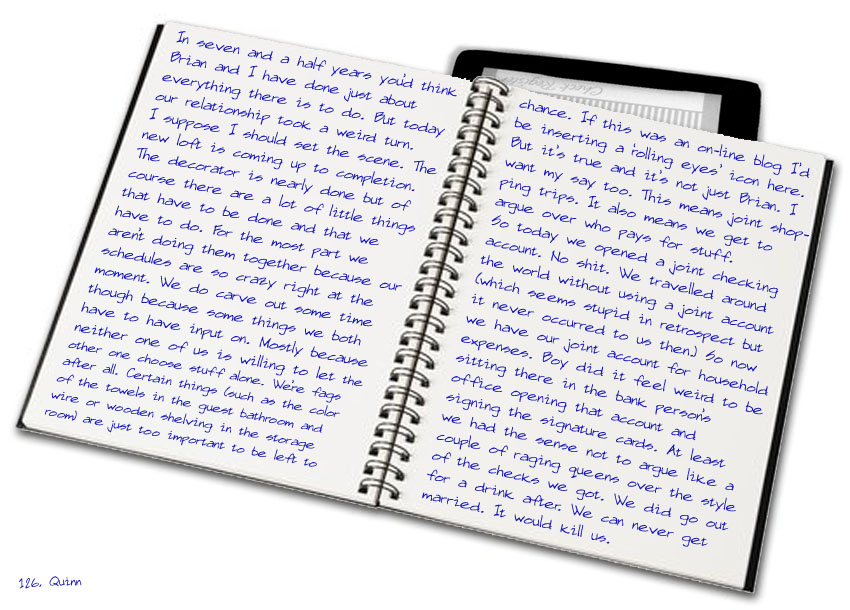 In seven and a half years you'd think
Brian and I have done just about
everything there is to do. But today
our relationship took a weird turn.
I suppose I should set the scene. The
new loft is coming up to completion.
The decorator is nearly done but of
course there are a lot of little things
that have to be done and that we
have to do. For the most part we
aren't doing them together because our
schedules are so crazy right at the
moment. We do carve out some time
though because some things we both
have to have input on. Mostly because
neither one of us is willing to let the
other one choose stuff alone. We're fags
after all. Certain things (such as the color
of the towels in the guest bathroom and
wire or wooden shelving in the storage
room) are just too important to be left to
Check Register
chance. If this was an on-line blog I'd
be inserting a 'rolling eyes' icon here.
But it's true and it's not just Brian. I
want my say too. This means joint shop-
ping trips. It also means we get to
argue over who pays for stuff.
So today we opened a joint checking
account. No shit. We travelled around
the world without using a joint account
(which seems stupid in retrospect but
it never occurred to us then.) So now
we have our joint account for household
expenses. Boy did it feel weird to be
sitting there in the bank person's
office opening that account and
signing the signature cards. At least
we had the sense not to argue like a
couple of raging queens over the style
of the checks we got. We did go out
for a drink after. We can never get
married. It would kill us.
126. Quinn